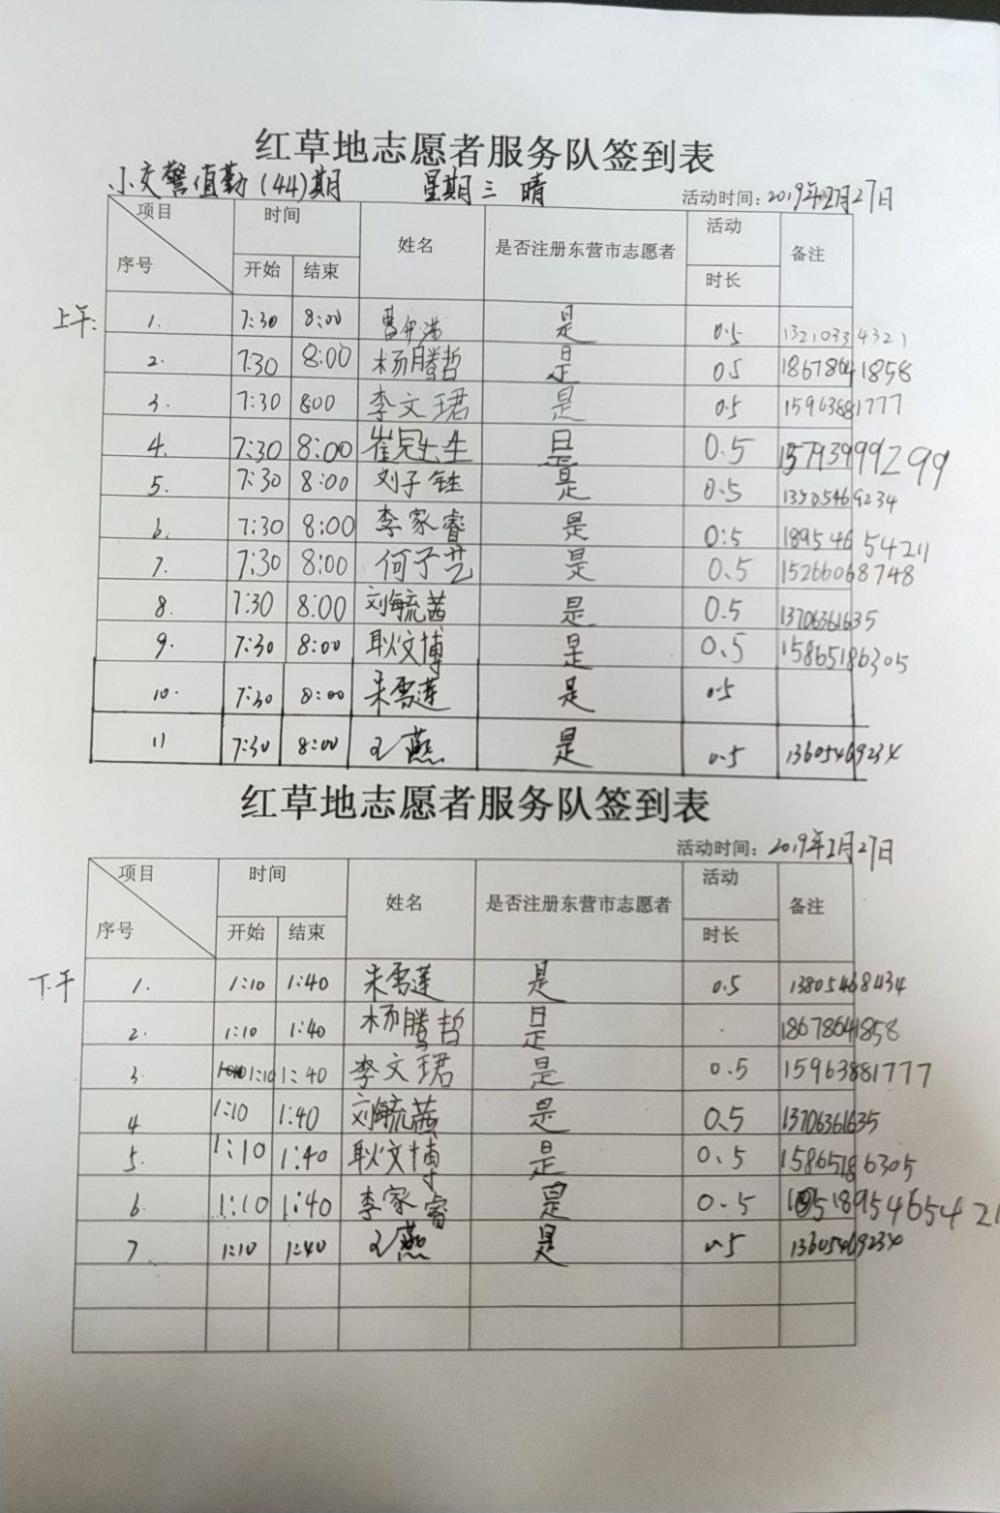 红草地志愿者服务队签到表
小交警值勤(44)期 星期三 晴 活动时间:2019年2月27日
项目 序号 时间 开始 结束 姓名 是否注册东营市志愿者 活动 时长 备注
上午:
1. 7:30 8:00 是 0.5 13210334321
2. 7:30 8:00 杨腾哲 是 0.5 18678641858
3. 7:30 8:00 李文珺 是 0.5 15963881777
4. 7:30 8:00 是 0.5
5. 7:30 8:00 刘子铨 是 0.5
6. 7:30 8:00 李家睿 是 0.5 18954654211
7. 7:30 8:00 何子艺 是 0.5 15266068748
8. 7:30 8:00 刘毓茜 是 0.5 13706361635
9. 7:30 8:00 耿文博 是 0.5 15865186305
10. 7:30 8:00 朱雪莲 是 0.5
11 7:30 8:00 王燕 是 0.5 13605469234
红草地志愿者服务队签到表
活动时间:2019年2月27日
项目 序号 时间 开始 结束 姓名 是否注册东营市志愿者 活动 时长 备注
下午
1. 1:10 1:40 朱雪莲 是 0.5 13805468434
2. 1:10 1:40 杨腾哲 是 18678641858
3. 1:10 1:40 李文珺 是 0.5 15963881777
4 1:10 1:40 刘毓茜 是 0.5 13706361635
5. 1:10 1:40 耿文博 是 0.5 15865186305
6. 1:10 1:40 李家睿 是 0.5
7 1:10 1:40 王燕 是 0.5 13605469234